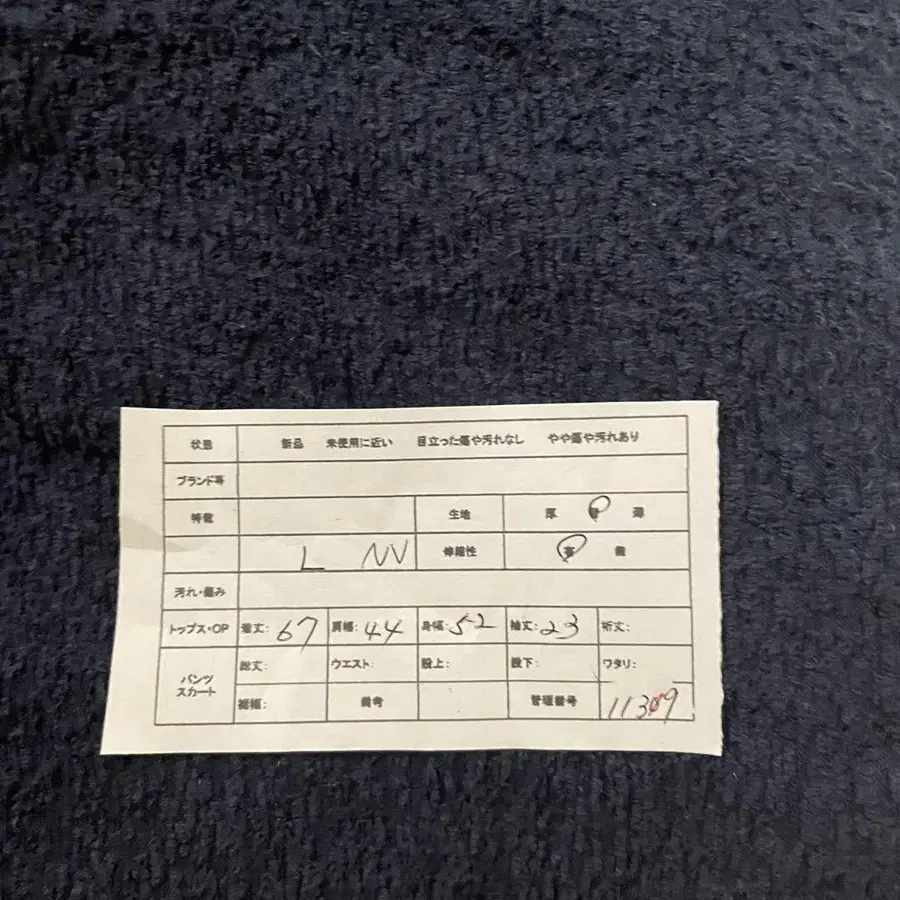 状態 新品 未使用に近い 目立った傷や汚れなし やや傷や汚れあり
ブランド等
特徴 生地 厚 普 薄
L NV 伸縮性 有 無
汚れ・傷み
トップス・OP 着丈: 67 肩幅: 44 身幅: 52 袖丈: 23 裄丈:
パンツ スカート 総丈: ウエスト: 股上: 股下: ワタリ:
裾幅: 備考 管理番号 11309